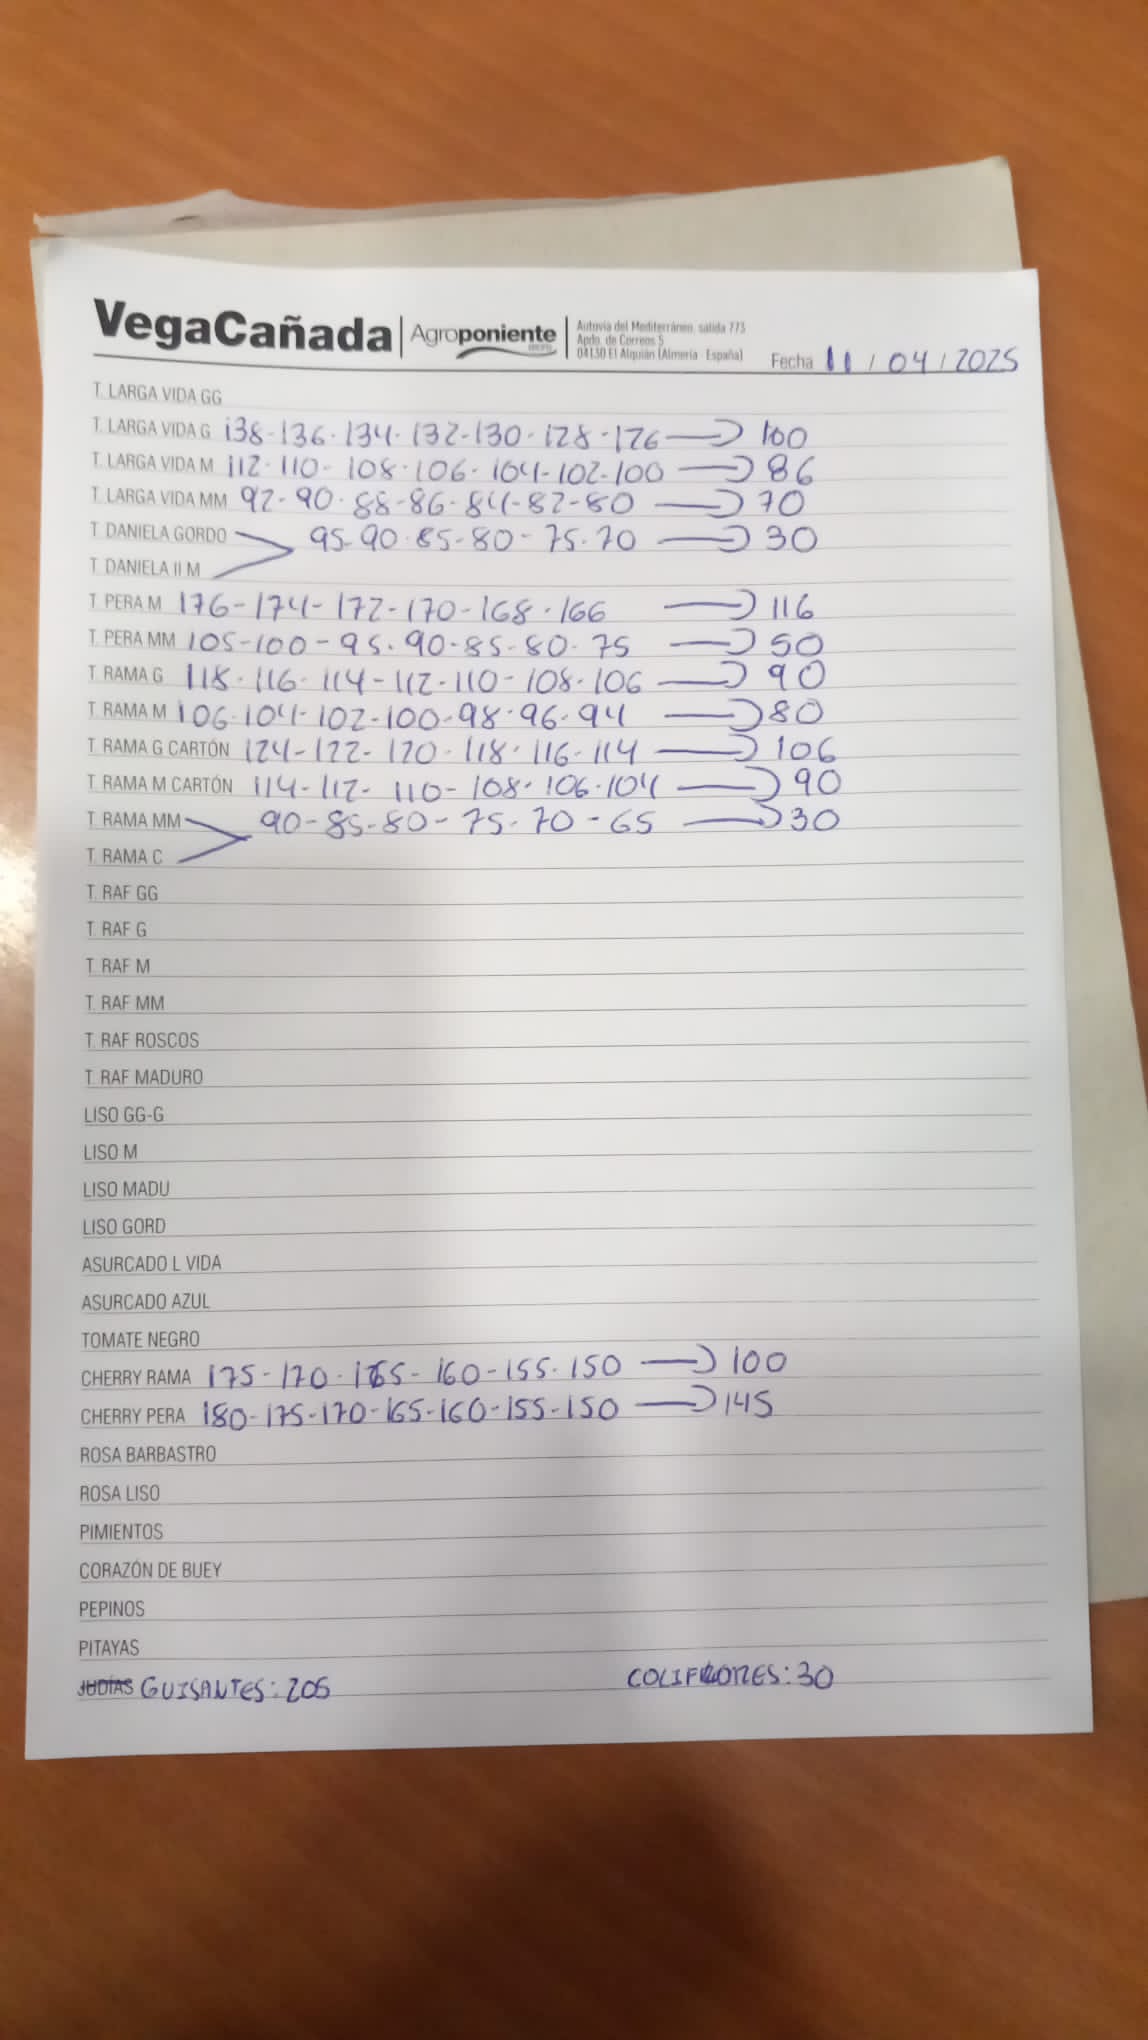 VegaCañada | Agroponiente | Autovía del Mediterráneo, salida 773
Apdo. de Correos 5
04130 El Alquián (Almería - España)
Fecha 11 / 04 / 2025
T. LARGA VIDA GG
T. LARGA VIDA G 138-136-134-132-130-128-126 → 100
T. LARGA VIDA M 112-110-108-106-104-102-100 → 86
T. LARGA VIDA MM 92-90-88-86-84-82-80 → 70
T. DANIELA GORDO 95-90-85-80-75-70 → 30
T. DANIELA II M
T. PERA M 176-174-172-170-168-166 → 116
T. PERA MM 105-100-95-90-85-80-75 → 50
T. RAMA G 118-116-114-112-110-108-106 → 90
T. RAMA M 106-104-102-100-98-96-94 → 80
T. RAMA G CARTÓN 124-122-120-118-116-114 → 106
T. RAMA M CARTÓN 114-112-110-108-106-104 → 90
T. RAMA MM 90-85-80-75-70-65 → 30
T. RAMA C
T. RAF GG
T. RAF G
T. RAF M
T. RAF MM
T. RAF ROSCOS
T. RAF MADURO
LISO GG-G
LISO M
LISO MADU
LISO GORD
ASURCADO L VIDA
ASURCADO AZUL
TOMATE NEGRO
CHERRY RAMA 175-170-165-160-155-150 → 100
CHERRY PERA 180-175-170-165-160-155-150 → 145
ROSA BARBASTRO
ROSA LISO
PIMIENTOS
CORAZÓN DE BUEY
PEPINOS
PITAYAS
JUDÍAS GUISANTES: 205 COLIFLORES: 30